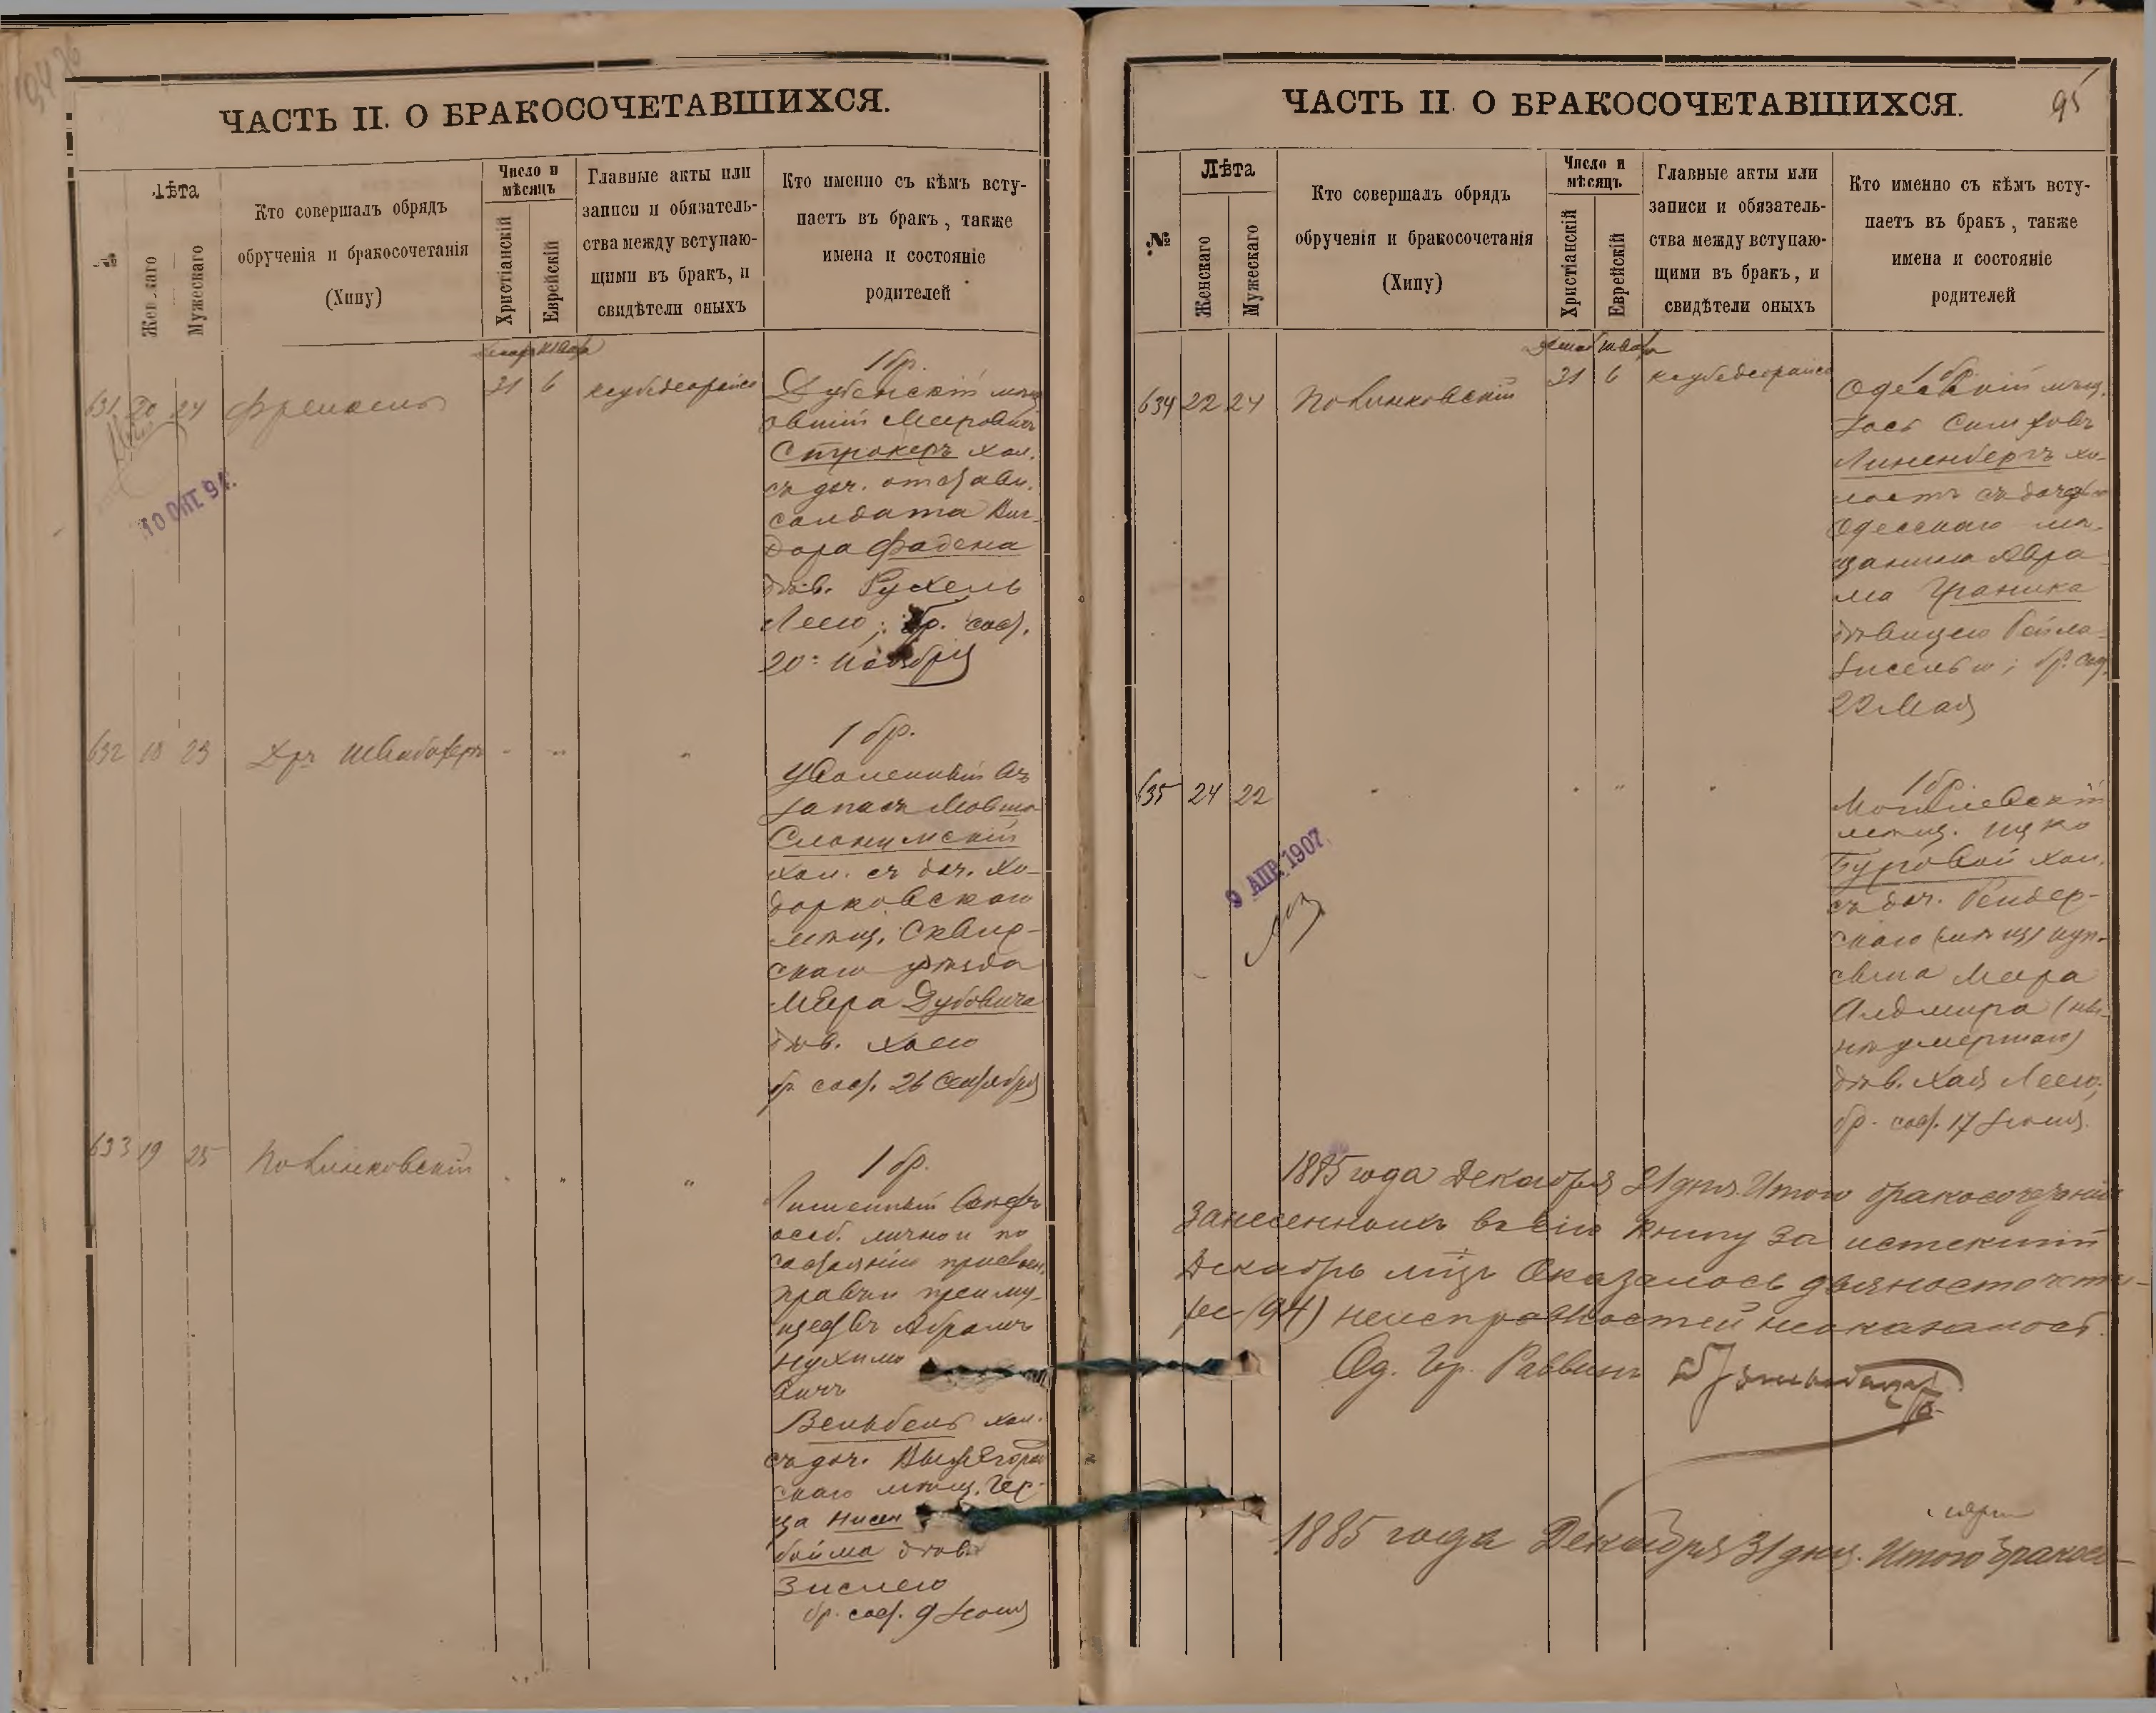 ЧАСТЬ II. О БРАКОСОЧЕТАВШИХСЯ.
№
Лѣта
Женскаго
Мужескаго
Кто совершалъ обрядъ
обрученія и бракосочетанія
(Хипу)
Число и
мѣсяцъ
Христіанскій
Еврейскій
Главные акты или
записи и обязатель-
ства между вступаю-
щими въ бракъ, и
свидѣтели оныхъ
Кто именно съ кѣмъ всту-
паетъ въ бракъ, также
имена и состояніе
родителей
631 20 24
31 6
1 бр.
Дубенскій мѣщ.
Меировичъ
Строкеръ хол.
съ доч. отстав.
солдата Виг-
дора Фадена
дѣв. Рухель
Леею; бр. сост.
20: Ноября
10 ОКТ 94.
632 18 23 Дръ Швабахеръ
1 бр.
Уволенный въ
запасъ Мовша
Слонимскій
хол. съ доч. Хо-
дорковскаго
мѣщ. Сквир-
скаго уѣзда
Меера Дубовича
дѣв. Хаею
бр. сост. 26 Сентября
633 19 25 Полинковскій
1 бр.
Лишенный всѣхъ
особ. лично и по
состоянію присвоен.
правъ и преиму-
ществъ Абрамъ
Нухимо
вичъ
Вельбель хол.
съ доч. Вышегород
скаго мѣщ. Гер-
ца Нисен
бойма дѣв.
Зислею
бр. сост. 9 Іюня
ЧАСТЬ II. О БРАКОСОЧЕТАВШИХСЯ.
95
№
Лѣта
Женскаго
Мужескаго
Кто совершалъ обрядъ
обрученія и бракосочетанія
(Хипу)
Число и
мѣсяцъ
Христіанскій
Еврейскій
Главные акты или
записи и обязатель-
ства между вступаю-
щими въ бракъ, и
свидѣтели оныхъ
Кто именно съ кѣмъ всту-
паетъ въ бракъ, также
имена и состояніе
родителей
634 22 24 Полинковскій
31 6
1 бр.
Одесскій мѣщ.
Іось
Линенбергъ хо-
лостъ съ дочерью
Одесскаго мѣ-
щанина Авра-
ма Граника
дѣвицею Бейла-
Гиселью; бр. сост.
22 Мая
635 24 22
1 бр.
Могилевскій
мѣщ. Ицко
Буровой хол.
съ доч. Бендер-
скаго (мѣщ) куп.
сына Меера
Алдмира (ны-
нѣ умершаго)
дѣв. Хая Леею;
бр. сост. 17 Іюня.
9 АПР 1907
1885 года Декабря 31 дня. Итого бракосочетаній
занесенныхъ въ сію книгу за истекшій
Декабрь мѣсъ оказалось девяносто четы-
ре (94) неисправностей неоказалось.
Од. Гр. Раввинъ
1885 года Декабря 31 дня. Итого бракосо-